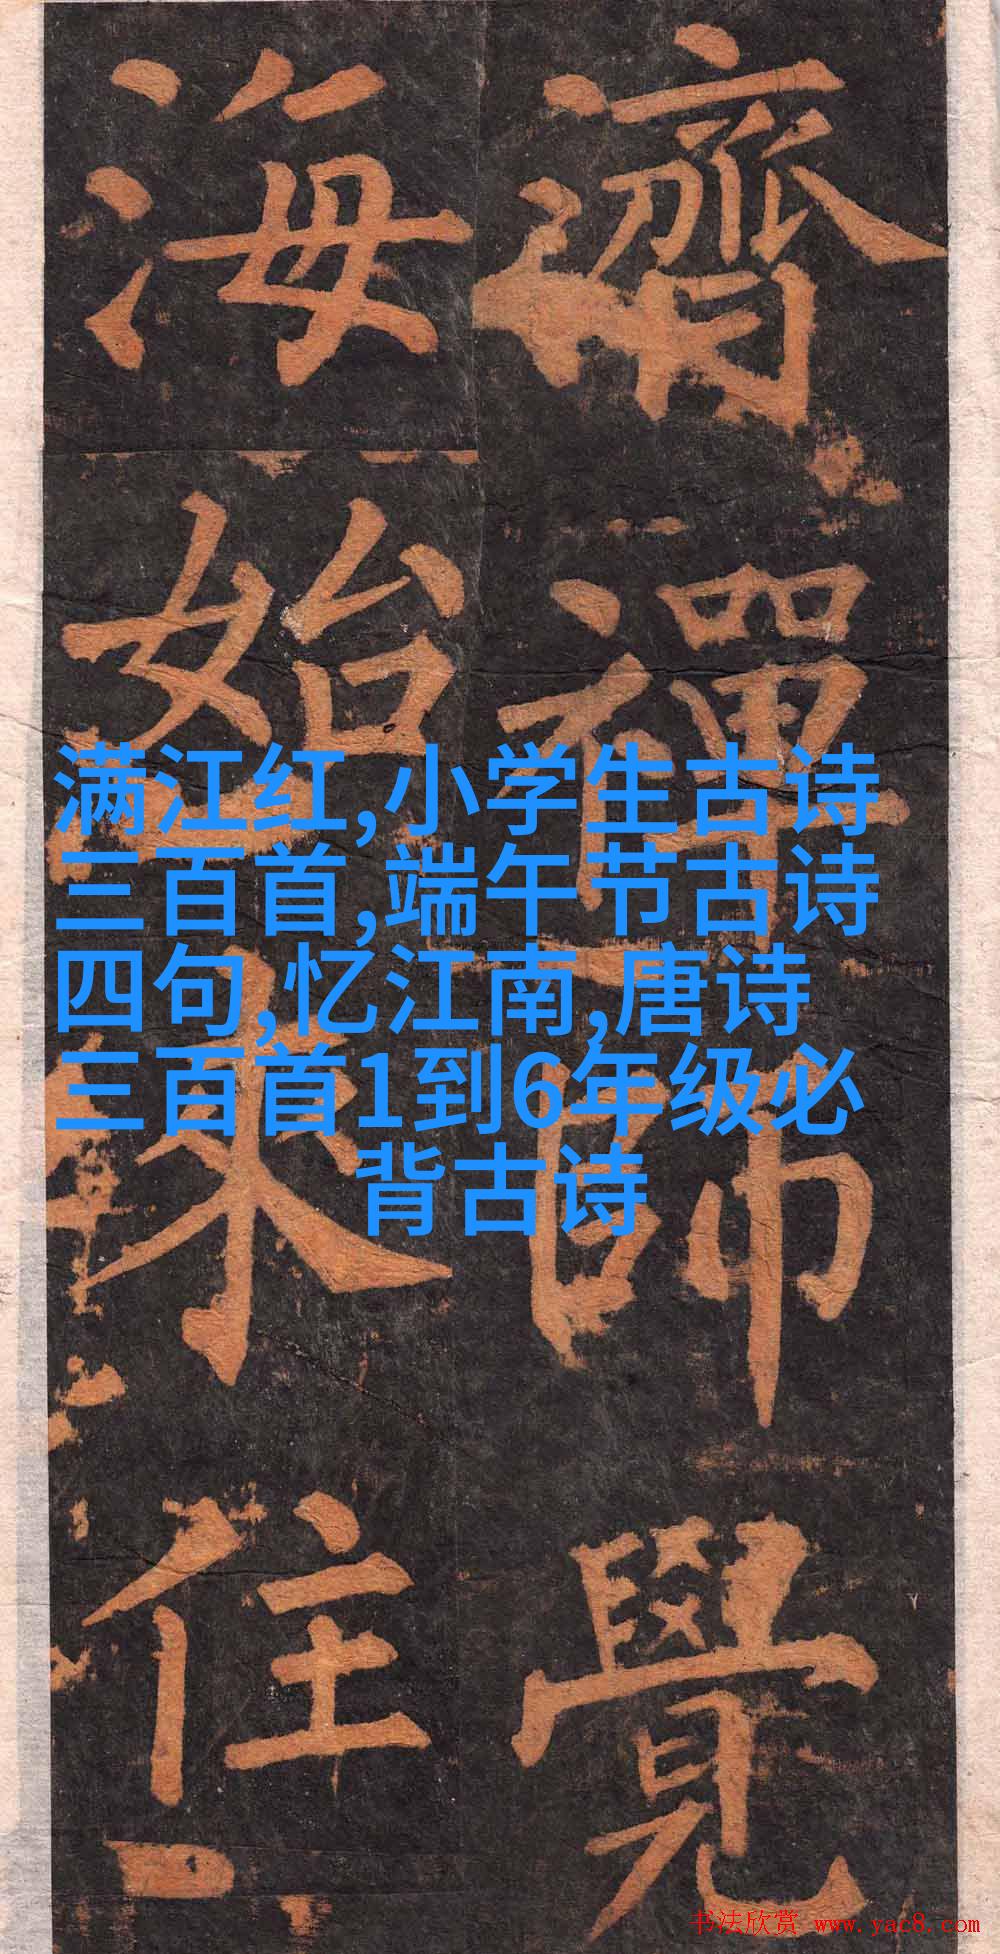 濟禪師覺
海始來住
满江红,小学生古诗
三百首,端午节古诗
四句,忆江南,唐诗
三百首1到6年级必
背古诗
书法欣赏 www.yac8.com